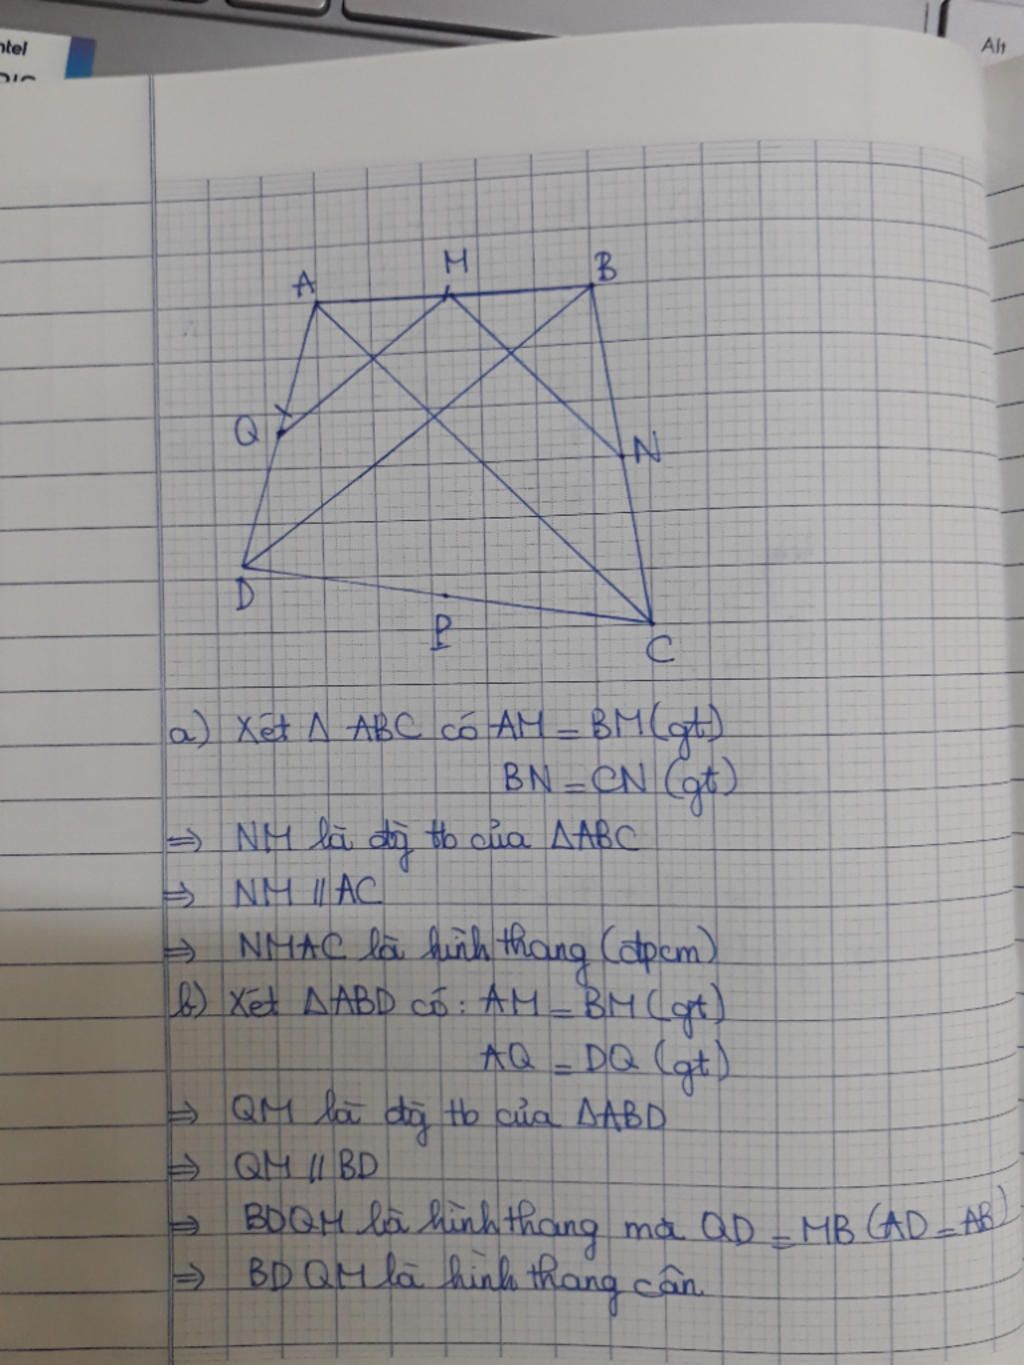 ntel
Alt
A
M
B
Q
N
D
P
C
a) Xét Δ ABC có AM = BM (gt)
BN = CN (gt)
⇒ NM là đg tb của ΔABC
⇒ NM // AC
⇒ NMAC là hình thang (đpcm)
b) Xét ΔABD có: AM = BM (gt)
AQ = DQ (gt)
⇒ QM là đg tb của ΔABD
⇒ QM // BD
⇒ BDQM là hình thang mà QD = MB (AD = AB)
⇒ BDQM là hình thang cân